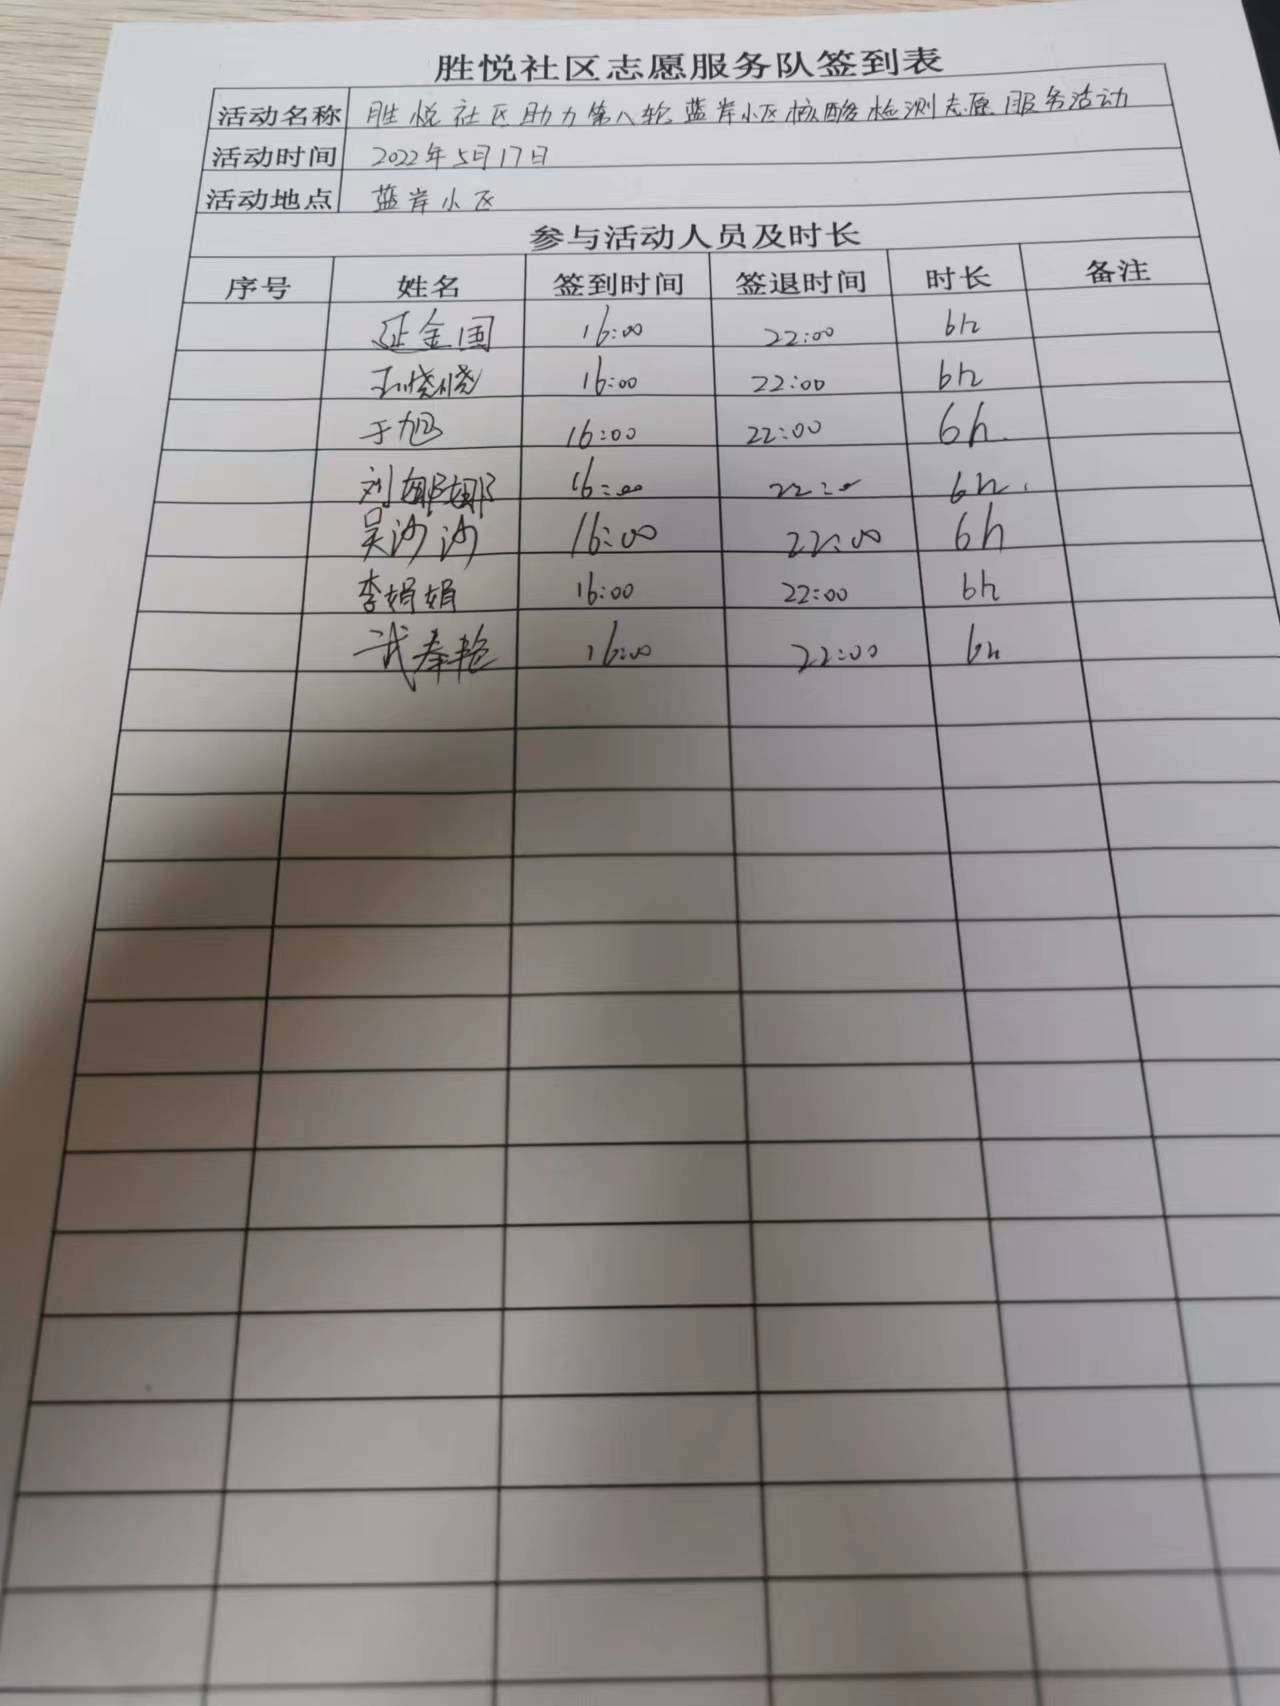 胜悦社区志愿服务队签到表
活动名称 胜悦社区助力第八轮蓝岸小区核酸检测志愿服务活动
活动时间 2022年5月17日
活动地点 蓝岸小区
参与活动人员及时长
序号 姓名 签到时间 签退时间 时长 备注
延金国 16:00 22:00 6h
王晓晓 16:00 22:00 6h
于旭 16:00 22:00 6h.
刘娜娜 16:00 22:00 6h.
吴沙沙 16:00 22:00 6h
李娟娟 16:00 22:00 6h
武春艳 16:00 22:00 6h